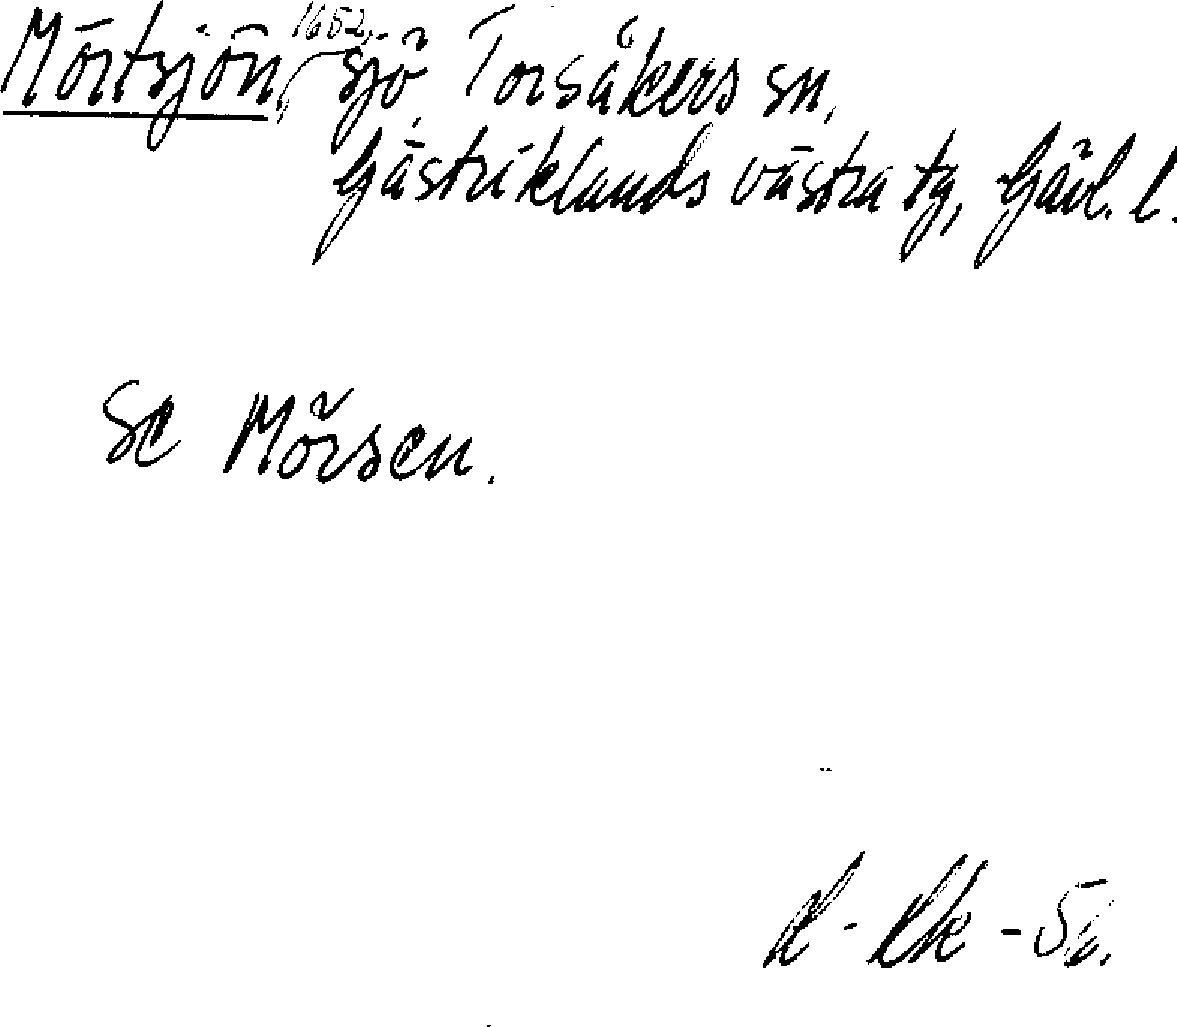 Mörtsjön, 1652, sjö, Torsåkers sn,
Gästriklands västra tg, Gävl. l.
Se Mörsen.